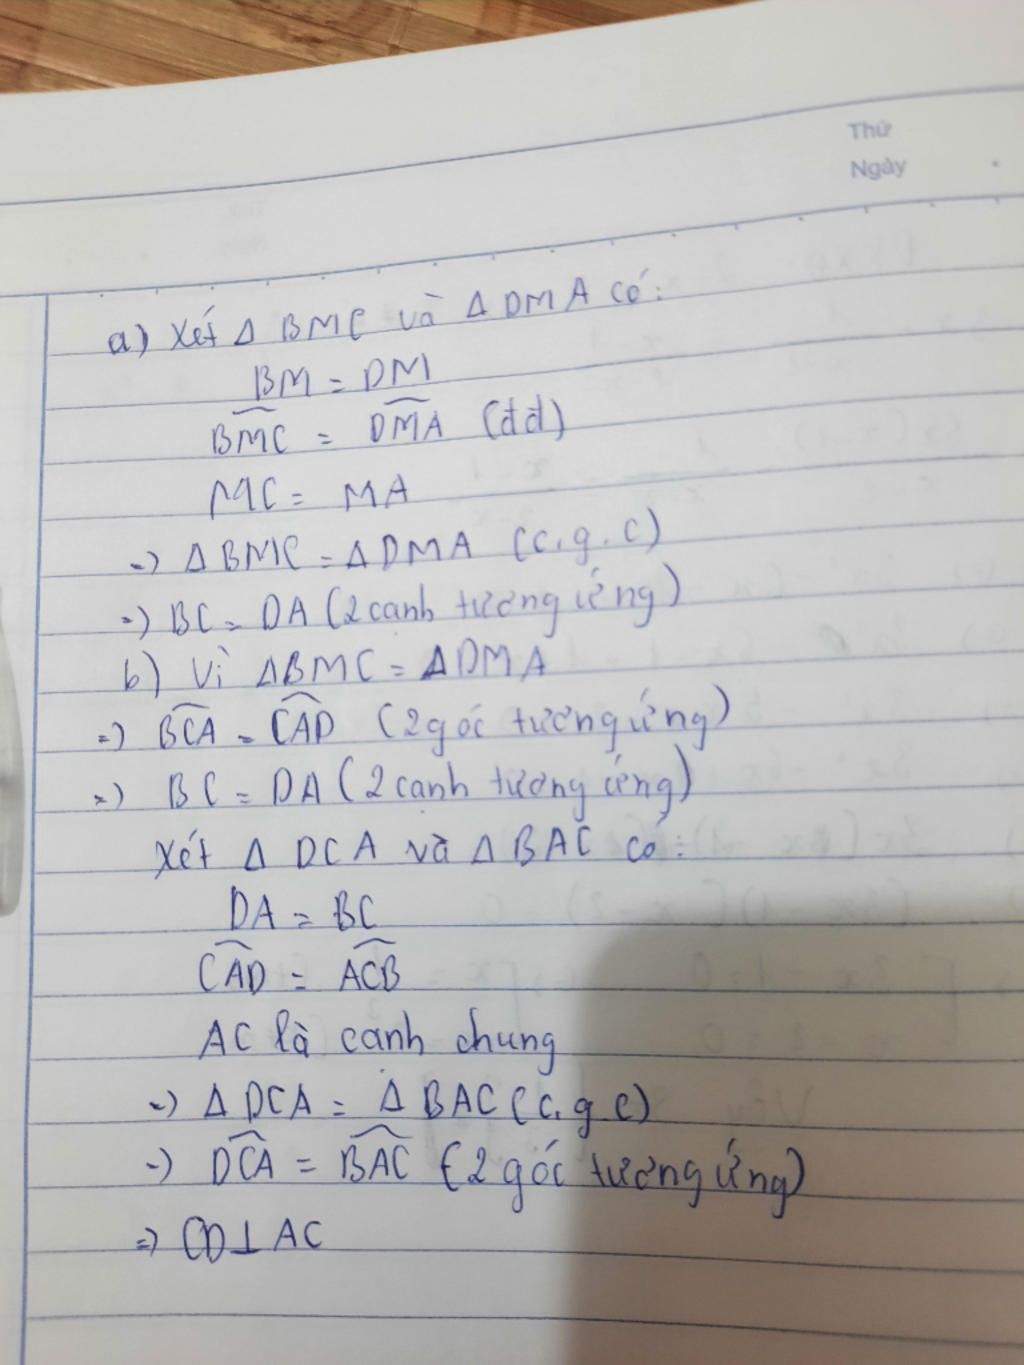 Thứ
Ngày
a) Xét Δ BMC và Δ DMA có:
BM = DM
\widehat{BMC} = \widehat{DMA} (đđ)
MC = MA
=) Δ BMC = Δ DMA (c.g.c)
=) BC = DA (2 cạnh tương ứng)
b) Vì ΔBMC = ΔDMA
=) \widehat{BCA} = \widehat{CAD} (2 góc tương ứng)
=) BC = DA (2 cạnh tương ứng)
Xét Δ DCA và Δ BAC có:
DA = BC
\widehat{CAD} = \widehat{ACB}
AC là cạnh chung
=) Δ DCA = Δ BAC (c.g c)
=) \widehat{DCA} = \widehat{BAC} (2 góc tương ứng)
=) CD ⊥ AC